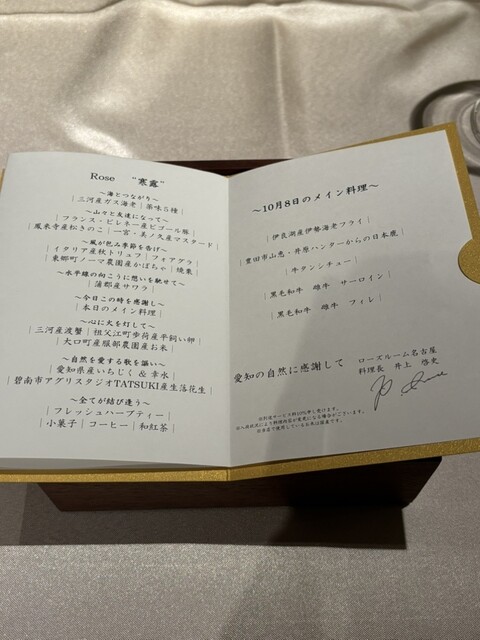 Rose “寒露”
～海とつながり～
｜三河産ガス海老｜薬味５種｜
～山々と友達になって～
｜フランス・ピレネー産ビゴール豚｜
鳳来寺産松きのこ｜一宮・美ノ久産マスタード
～風が包み季節を告げ～
｜イタリア産秋トリュフ｜フォアグラ｜
東郷町ノーマ農園産かぼちゃ｜焼栗｜
～水平線の向こうに想いを馳せて～
｜蒲郡産サワラ｜
～今日この時を感謝し～
｜本日のメイン料理｜
～心に火を灯して～
｜三河産渡蟹｜祖父江町歩荷産平飼い卵｜
｜大口町産服部農園産お米｜
～自然を愛する歌を謳い～
｜愛知県産いちじく & 幸水｜
碧南市アグリスタジオTATSUKI産生落花生｜
～全てが結び逢う～
｜フレッシュハーブティー｜
｜小菓子｜コーヒー｜和紅茶｜
～10月8日のメイン料理～
｜伊良湖産伊勢海老フライ｜
｜豊田市山恵・井原ハンターからの日本鹿｜
｜牛タンシチュー｜
｜黒毛和牛　雌牛　サーロイン｜
｜黒毛和牛　雌牛　フィレ｜
愛知の自然に感謝して
ローズルーム名古屋
料理長　井上　啓史
※別途サービス料10%申し受けます。
※入荷状況により料理内容が変更になる場合がございます。
※当店で使用しているお米は国産です。